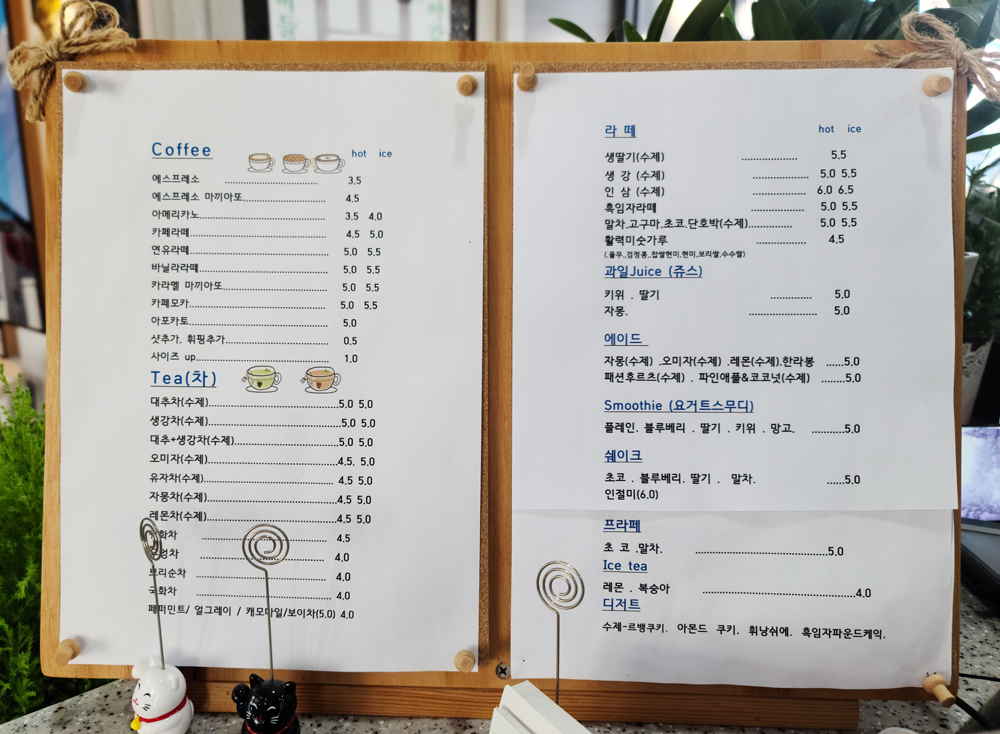 Coffee hot ice
에스프레소 .............................. 3.5
에스프레소 마끼아또.......................... 4.5
아메리카노.......................................... 3.5 4.0
카페라떼.............................................. 4.5 5.0
연유라떼.............................................. 5.0 5.5
바닐라라떼........................................... 5.0 5.5
카라멜 마끼아또.................................. 5.0 5.5
카페모카.............................................. 5.0 5.5
아포카토.............................................. 5.0
샷추가, 휘핑추가................................. 0.5
사이즈 up........................................... 1.0
Tea(차)
대추차(수제)...........................................5.0 5.0
생강차(수제)...........................................5.0 5.0
대추+생강차(수제)..................................5.0 5.0
오미자(수제)...........................................4.5, 5.0
유자차(수제)........................................... 4.5 5.0
자몽차(수제)...........................................4.5 5.0
레몬차(수제)...........................................4.5 5.0
화차 ........................................ 4.5
차 ........................................ 4.0
보리순차 ........................................ 4.0
국화차 ........................................ 4.0
페퍼민트/ 얼그레이 / 캐모마일/보이차(5.0) 4.0
라 떼 hot ice
생딸기(수제) .................. 5.5
생 강 (수제) .................. 5.0 5.5
인 삼 (수제) .................. 6.0 6.5
흑임자라떼 .................. 5.0 5.5
말차.고구마.초코.단호박(수제).............. 5.0 5.5
활력미숫가루 ................ 4.5
(.율무.,검정콩.,찹쌀현미,현미,보리쌀,수수쌀)
과일Juice (쥬스)
키위 . 딸기 .............. 5.0
자몽. ...................... 5.0
에이드
자몽(수제) .오미자(수제) .레몬(수제).한라봉 ......5.0
패션후르츠(수제) . 파인애플&코코넛(수제) ........5.0
Smoothie (요거트스무디)
플레인. 블루베리 . 딸기 . 키위 . 망고. ...........5.0
쉐이크
초코 . 블루베리. 딸기 . 말차. ......5.0
인절미(6.0)
프라페
초 코 .말차. ............................................5.0
Ice tea
레몬 . 복숭아 ..................................................4.0
디저트
수제-르뱅쿠키. 아몬드 쿠키. 휘낭쉬에. 흑임자파운드케익.